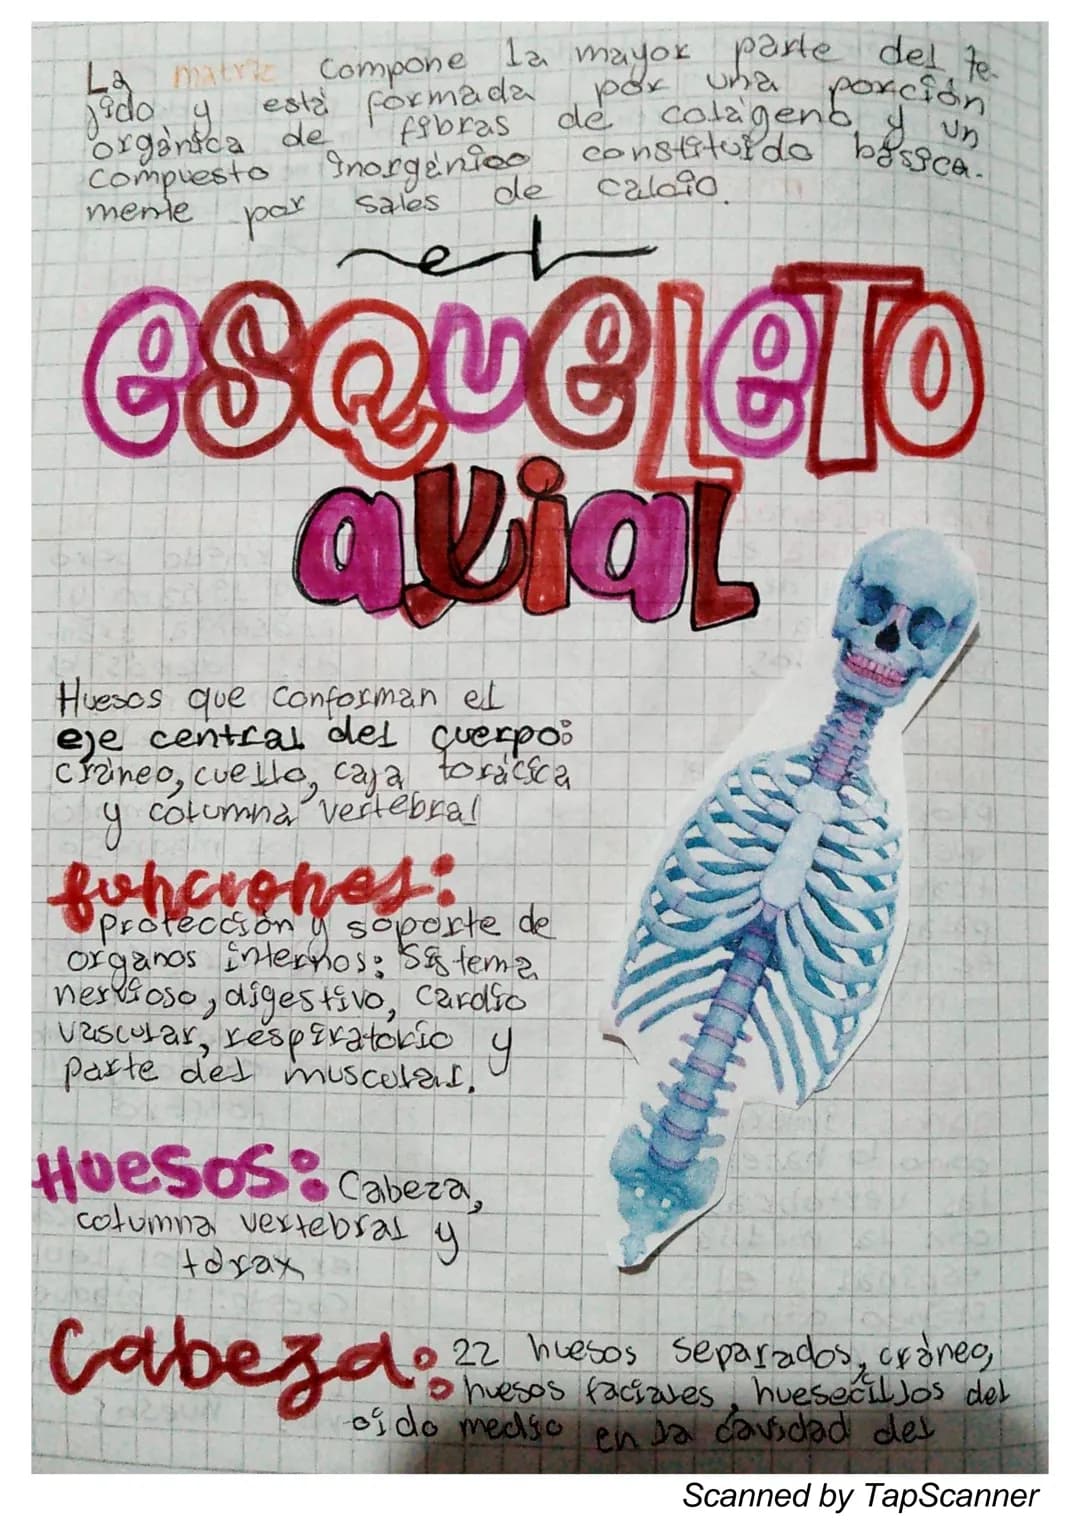 La matriz compone la mayor parte del te-
jido y está formada por una porción
orgánica de fibras de colágeno y un
compuesto inorgánico constituido básica-
mente por sales de calcio.
el
esqueleto
axial
Huesos que conforman el
eje central del cuerpo:
cráneo, cuello, caja torácica
y columna vertebral
funciones:
protección y soporte de
organos internos: Sistema
nervioso, digestivo, cardio
vascular, respiratorio y
parte del muscular.
Huesos: Cabeza,
columna vertebral y
tórax
Cabeza: 22 huesos separados, cráneo,
huesos faciales, huesecillos del
oído medio en la cavidad del
Scanned by TapScanner